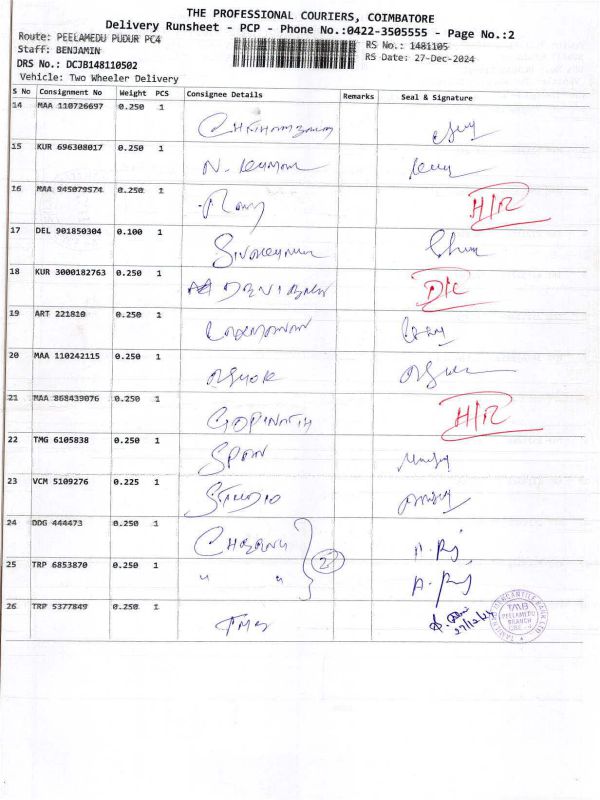 THE PROFESSIONAL COURIERS, COIMBATORE
Delivery Runsheet - PCP - Phone No.:0422-3505555 - Page No.:2
Route: PEELAMEDU PUDUR PC4
RS No.: 1481105
Staff: BENJAMIN
RS Date: 27-Dec-2024
DRS No.: DCJB148110502
Vehicle: Two Wheeler Delivery
S No Consignment No Weight PCS Consignee Details Remarks Seal & Signature
14 MAA 110726697 0.250 1
15 KUR 696308017 0.250 1 N. Kumar
16 MAA 945079574 0.250 1 Romy H/R
17 DEL 901850304 0.100 1 Sivakumar
18 KUR 3000182763 0.250 1 DEVIBALA D/C
19 ART 221810 0.250 1
20 MAA 110242115 0.250 1 ASHOK
21 MAA 868439076 0.250 1 GOPINATH H/R
22 TMG 6105838 0.250 1 SPAN
23 VCM 5109276 0.225 1 STUDIO
24 DDG 444473 0.250 1
25 TRP 6853870 0.250 1 " " 2
26 TRP 5377849 0.250 1 TMB 27/12/24
TAMILNAD MERCANTILE BANK LTD
TMB
PEELAMEDU
BRANCH
CBE - 4